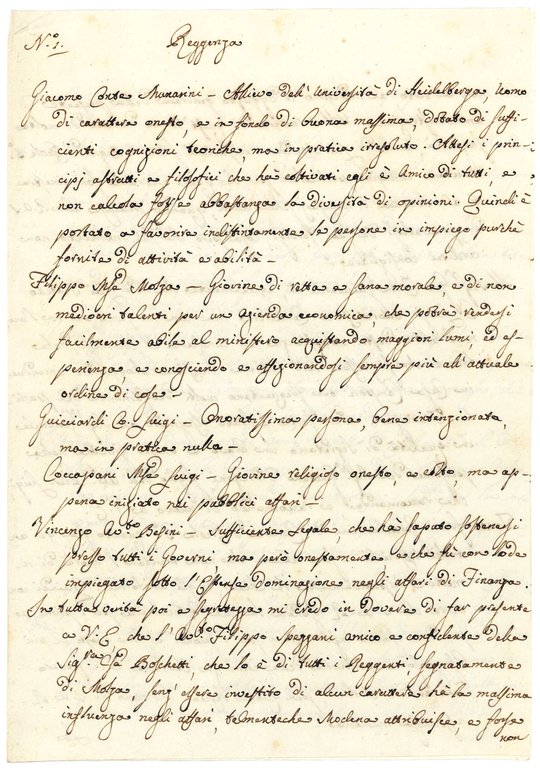 N.º 1. Reggenza
Giacomo Conte Munarini - Allievo dell' Università di Heidelberga uomo
di carattere onesto, e in fondo di buone massime, dotato di suffi-
cienti cognizioni teoriche, ma in pratica irresoluto. Attesi i prin-
cipj astratti e filosofici che ha coltivati egli è Amico di tutti, e
non calcola forse abbastanza la diversità di opinioni. Quindi è
portato a favorire indistintamente le persone in impiego purchè
fornite di attività e abilità -
Filippo M.se Molza - Giovine di retta e sana morale, e di non
mediocri talenti per un azienda economica, che potrà rendersi
facilmente abile al ministero acquistando maggiori lumi ed es-
perienza e conoscendo e affezionandosi sempre più all' attuale
ordine di cose -
Guicciardi Co: Luigi - Onoratissima persona, bene intenzionata,
ma in pratica nulla -
Coccapani M.se Luigi - Giovine religioso onesto, e colto, ma ap-
pena iniziato nei pubblici affari -
Vincenzo Av.to Besini - sufficiente Legale, che ha saputo sostenersi
presso tutti i Governi, ma però onestamente e che fù con lode
impiegato sotto l'Estense dominazione negli affari di Finanza.
In tutta verità poi e segretezza mi credo in dovere di far presente
a V. E che l' Av.to Filippo Speggani amico e confidente della
Sig.ra Boschetti, che lo è di tutti i Reggenti segnatamente
di Molza, senz' essere investito di alcun carattere hà la massima
influenza negli affari, talmenteche Modena attribuisce, e forse
non